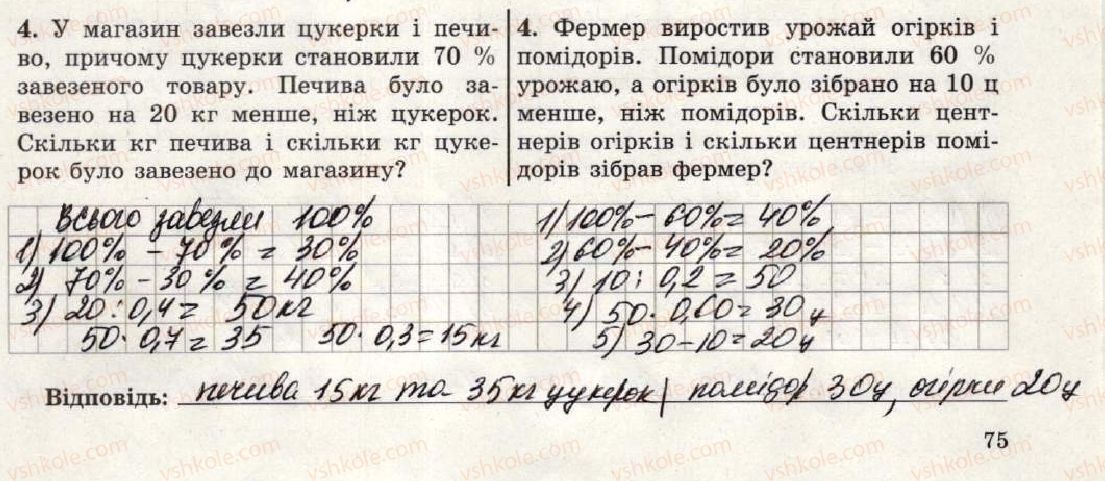 4. У магазин завезли цукерки і печи-
во, причому цукерки становили 70 %
завезеного товару. Печива було за-
везено на 20 кг менше, ніж цукерок.
Скільки кг печива і скільки кг цуке-
рок було завезено до магазину?
4. Фермер виростив урожай огірків і
помідорів. Помідори становили 60 %
урожаю, а огірків було зібрано на 10 ц
менше, ніж помідорів. Скільки цент-
нерів огірків і скільки центнерів помі-
дорів зібрав фермер?
Всього завезли 100%
1) 100% - 70% = 30%
2) 70% - 30% = 40%
3) 20 : 0,4 = 50 кг
50 · 0,7 = 35 50 · 0,3 = 15 кг
1) 100% - 60% = 40%
2) 60% - 40% = 20%
3) 10 : 0,2 = 50
4) 50 · 0,60 = 30 ц
5) 30 - 10 = 20 ц
Відповідь: печива 15 кг та 35 кг цукерок | помідор 30 ц, огірки 20 ц
75
vshkole.com